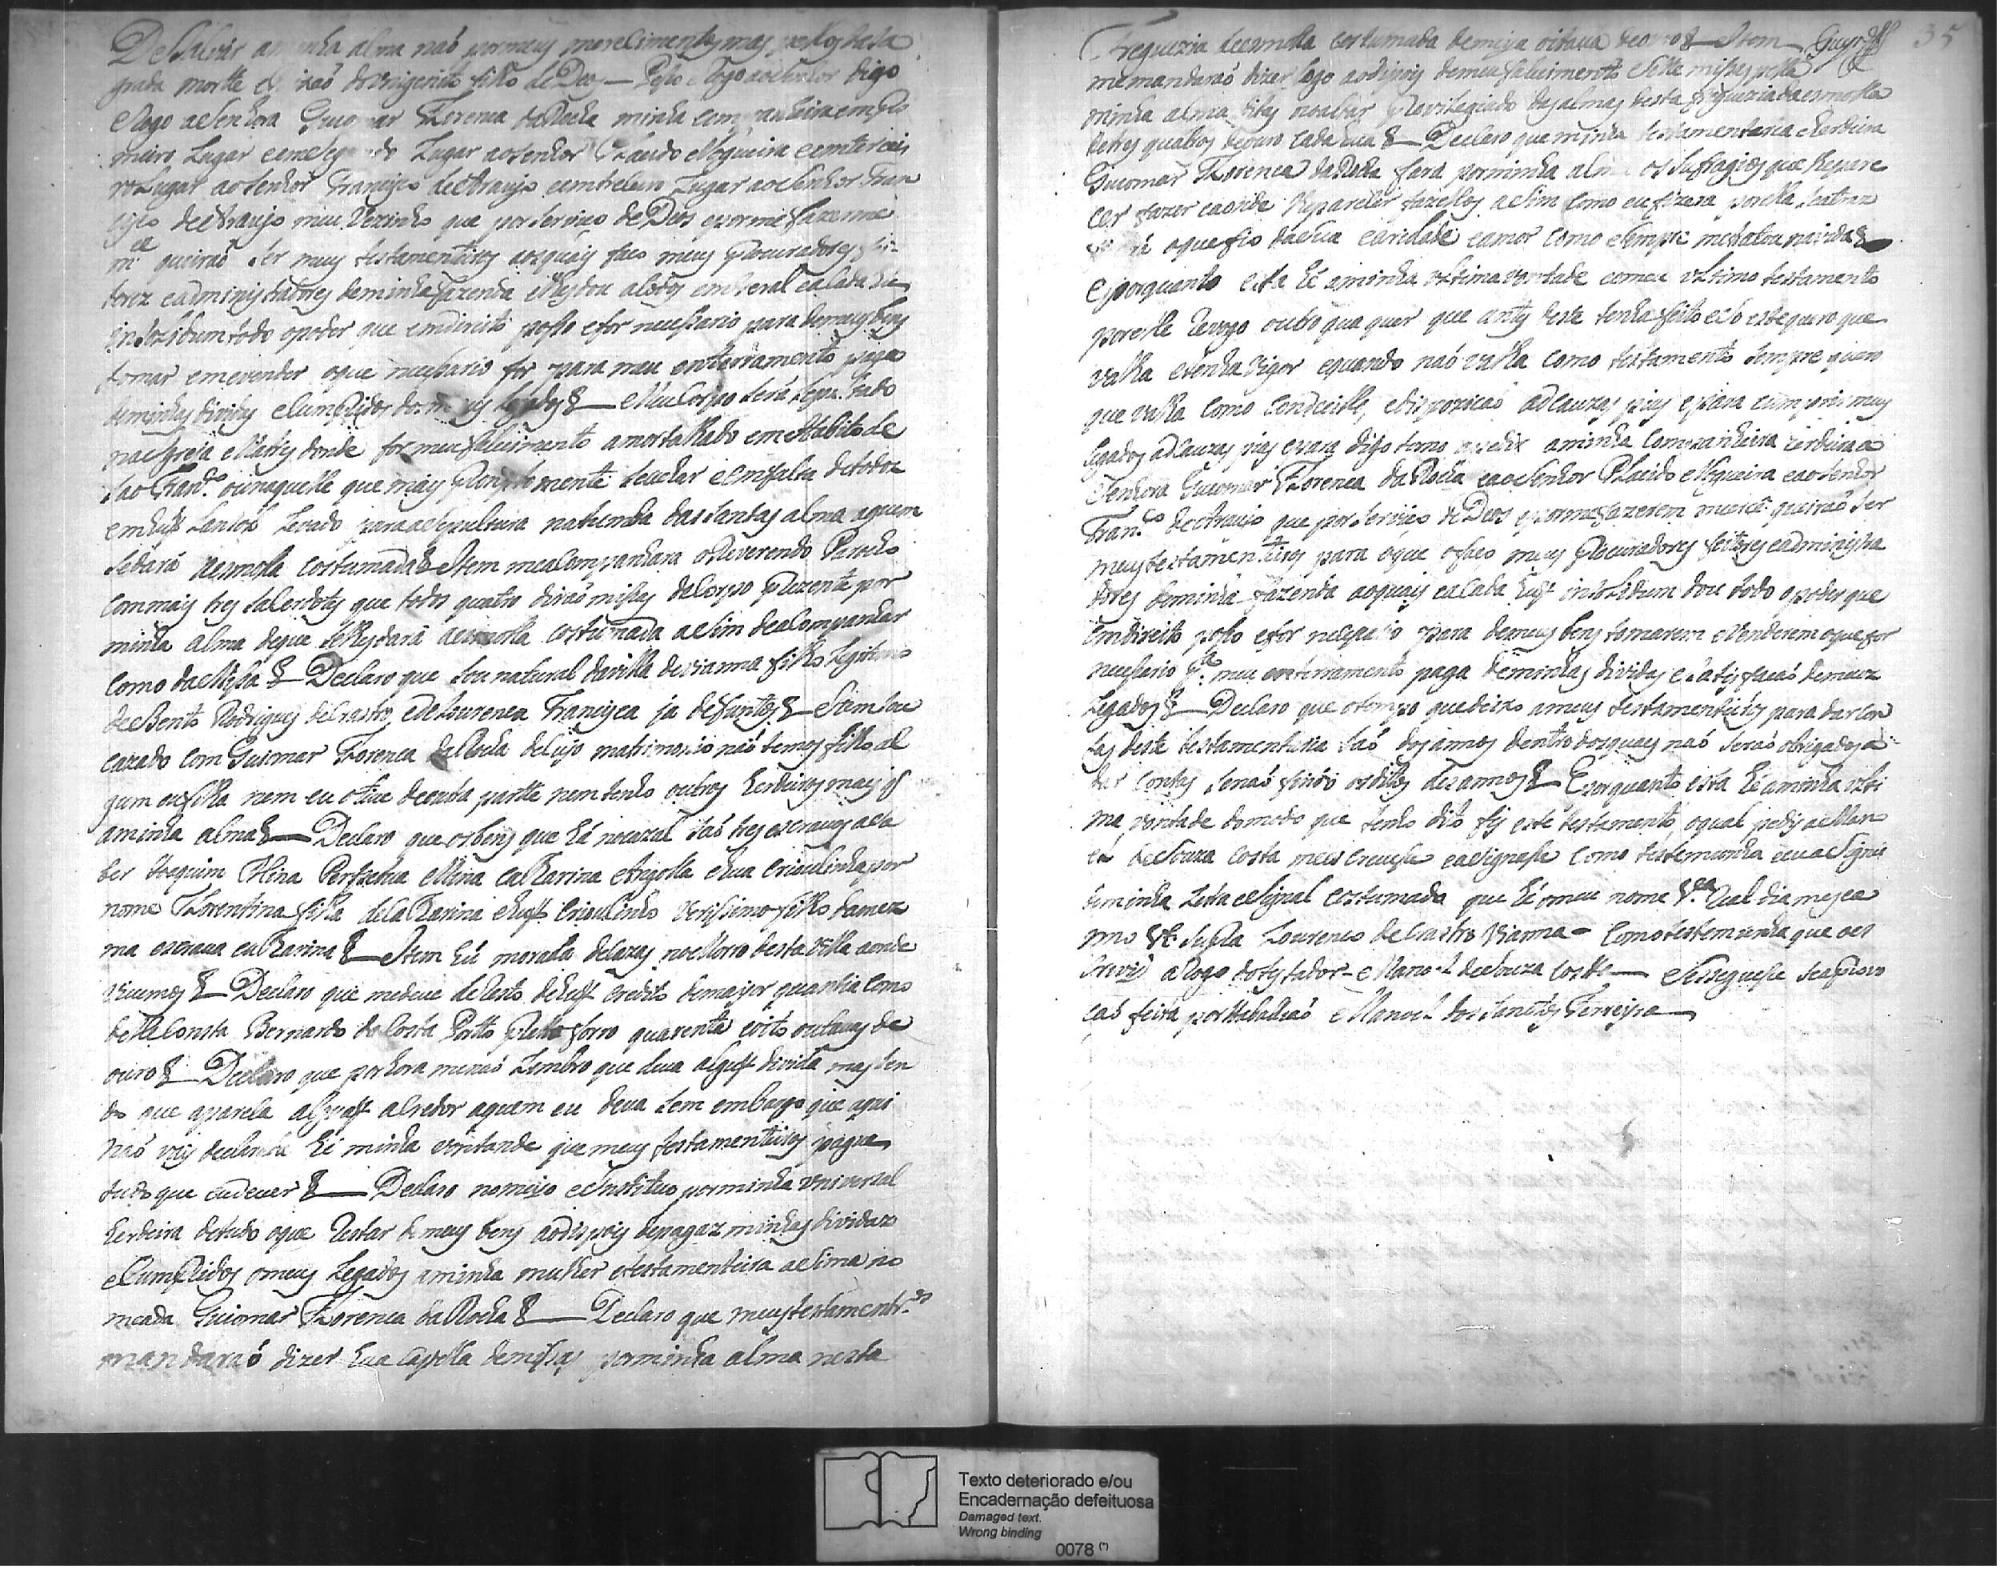 De Salvar a minha alma naõ por meus merecimentos mas pella sa
grada morte e paixaõ do Unigenito filho de Deos — Peço e Rogo ao Senhor digo
e Rogo a Senhora Guiomar Florença da Rocha minha companheira em pri
meiro Lugar e em segundo Lugar ao Senhor Placido Nogueira e em tercei
ro Lugar ao Senhor Francisco de Araujo ao Senhor Fran
cisco de Araujo meu Vezinho que por serviço de Deos e por mi fazerem
m.ce queiraõ Ser meus testamenteiros aos quais faço meus Procuradores fei
torez e administradores de minha fazenda e lhes dou a todos em Geral e a cada hu
in Solidum todo o poder que em direito posso e for necessario para de meus bens
tomar em e vender o que necessario for para meu enterramento paga
de minhas dividas e Cumpridos dos meus Legados § — Meu Corpo será Sepultado
na Igreja e Matris donde for meu falecimento amortalhado em Habito de
Sao Fran.co ou naquelle que mais promptamente se achar e em falta de todos
em hum Lansol Levado para a Sepultura na tumba das Santas almas a quem
se dará a esmolla costumada § Item me acompanhará o Reverendo Parocho
com mais tres Sacerdotes que todos quatro diraõ missas de Corpo Prezente por
minha alma de que se lhes dará a esmolla costumada assim de acompanhar
como da Missa § — Declaro que Sou natural da villa de Vianna filho Legitimo
de Bento Rodrigues de Crasto, e de Lourença Francisca ja defuntos § — Item Sou
cazado com Guiomar Florença da Rocha de cujo matrimonio naõ temos filho al
gum ou filha nem eu o tive de outra parte nem tenho outros herdeiros mais q
a minha alma § — Declaro que os bens que há no cazal Saõ tres escravos a sa
ber Joaquim Mina Perpetua Mina Catharina Angolla e hua Crioulinha por
nome Florentina filha de Catharina e hum Crioulinho Verissimo filho da mez
ma escrava Catharina § — Item hũ morada de cazas no Morro desta Villa aonde
vivemos § — Declaro que me deve de resto de hum Credito de mayor quantia como
delle Consta Bernardo da Costa Porto Preto forro quarenta e oito outavas de
ouro § — Declaro que por hora me naõ Lembro que deva algum divida mas sen
do que apareça algum acredor a quem eu deva sem embargo que aqui
naõ vai declarado hé minha vontande que meus testamenteiros paguem
tudo que eu dever § — Declaro nomeyo e Instituo por minha universal
herdeira de tudo o que Restar de meus bens ao dispois de pagaz minhas dividaz
e Cumpridos o meus Legados a minha mulher e testamenteira assima no
meada Guiomar Florença da Rocha § — Declaro que meus testamentr.os
mandaraõ dizer hua Capella de missas por minha alma nesta
35
Freguezia de esmolla costumada de meya oitava de ouro § — Item
me mandaraõ dizer Logo ao dispois de meu falecimento Sette missas pella
minha alma ditas no altar Previlegiado das almas desta freguezia da esmolla
de tres quartos de ouro cada hua § — Declaro que minha testamentaria e herdeira
Guiomar Florença da Rocha fara por minha alma os Sufragios que lhe pare
cer fazer e aonde lhe parecer fazellos assim como eu fizera por ella
o que fio da sua caridade e amor como sempre me tratou na vida §
e porquanto esta hé a minha ultima vontade e o meu ultimo testamento
por este revogo outro qua quer que antes deste tenha feito e só este quero que
valha e tenha Vigor e quando naõ valha como testamento Sempre quero
que valha como Condecillo, e dispoziçaõ ad cauzas pias e para cumprir meus
Legados ad cauzas pias e para digo torno a pedir a minha Companheira e herdeira a
Senhora Guiomar Florença da Rocha e ao Senhor Placido Nogueira e ao Senhor
Fran.co de Araujo que por Serviço de Deos e por me fazerem merce queiraõ Ser
meus testamenteiros para o que o faço meus Procuradores feitores e administra
dores de minha fazenda aos quais e a cada hum in Solidum dou todo o poder que
em direito posso e for necessario para de meus bens tomarem e Venderem o que for
necessario p.a meu enterramento paga de minhas dividas e satisfacaõ de meuz
Legados § — Declaro que o tempo que deixo a meus testamenteiros para dar con
tas deste testamentaria Saõ dos annos dentro dos quais naõ seraõ obrigados a
dar contas senaõ findo os ditos dos annos § — E porquanto esta hé a minha ulti
ma vontade do modo que tenho dito fis este testamento, o qual pedi a Mano
el de Souza Costa me escrevesse e assignasse como testemunha e eu assignei
de minha Letra e Signal costumado que hé o meu nome V.a Real dia mes e a
nno ut Supra Lourenço de Crasto Vianna — Como testemunha que o es
crevi a Rogo do testador — Manoel de Souza Costa — e Seguesse a aprova
çaõ feita por tabaliaõ Manoel dos Santos Ferreyra —
Texto deteriorado e/ou
Encadernação defeituosa
Damaged text.
Wrong binding
0078 (*)